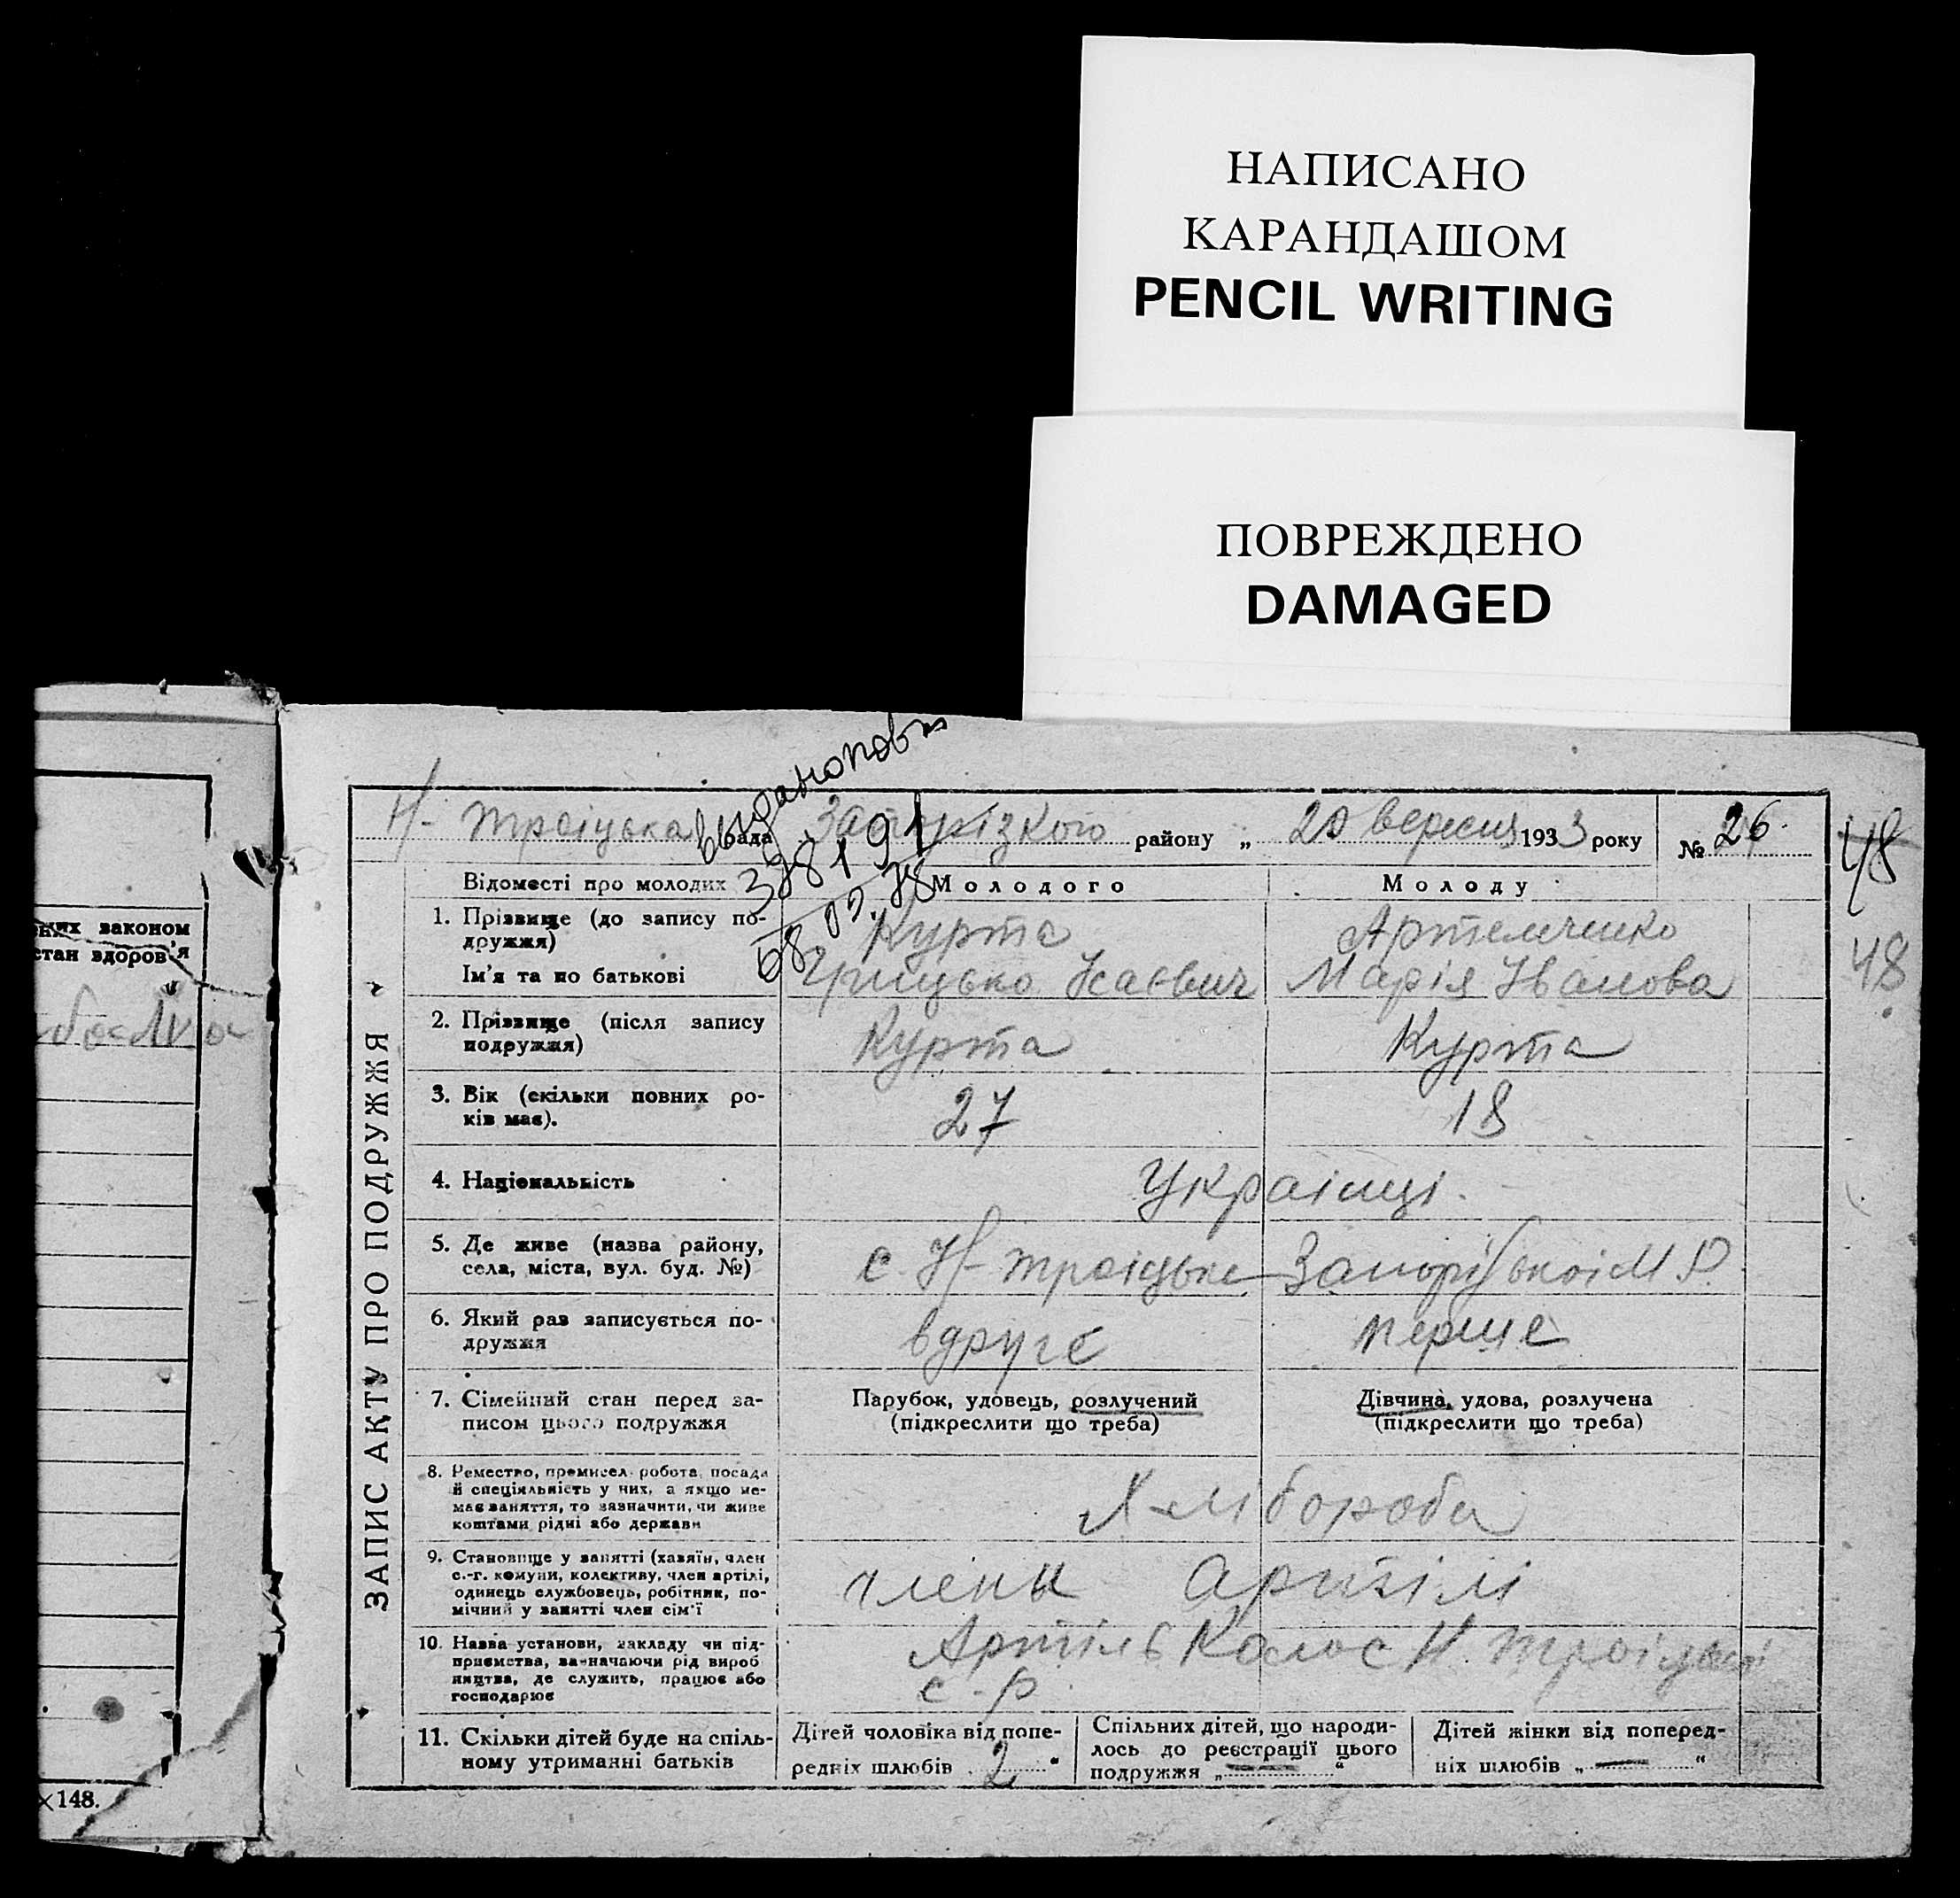 НАПИСАНО
КАРАНДАШОМ
PENCIL WRITING
ПОВРЕЖДЕНО
DAMAGED
законом
стан здоров'я
148.
Н- Троіцька рада Запорізкого району „ 20 вересня 1933 року № 26.
48
48
ЗАПИС АКТУ ПРО ПОДРУЖЖЯ
Відомості про молодих Молодого Молоду
1. Прізвище (до запису по- Курта Артемченко
дружжя)
Ім'я та по батькові Грицько Ісаєвич Марія Іванова
2. Прізвище (після запису Курта Курта
подружжя)
3. Вік (скільки повних ро- 27 18
ків має).
4. Національність Україиці.
5. Де живе (назва району, с Н-Троіцьке Запорізькоі М.Р.
села, міста, вул. буд. №)
6. Який раз записується по- вдруге перше
дружжя
7. Сімейний стан перед за- Парубок, удовець, розлучений Дівчина, удова, розлучена
писом цього подружжя (підкреслити що треба) (підкреслити що треба)
8. Ремество, промисел робота, посада
й спеціяльність у них, а якщо не-
має заняття, то зазначити, чи живе Хлібороби
коштами рідні або держави
9. Становище у занятті (хазяїн, член
с.-г. комуни, колективу, член артілі, члени Артілі
одинець службовець, робітник, по-
мічний у занятті член сім'ї
10. Назва установи, закладу чи під- Артіль Колос Н. Троіцькі
приємства, зазначаючи рід вироб
ництва, де служить, працює або с.р.
господарює
11. Скільки дітей буде на спіль- Дітей чоловіка від попе- Спільних дітей, що народи- Дітей жінки від поперед-
ному утриманні батьків редніх шлюбів „ 2 “ лось до реєстрації цього ніх шлюбів „ — “
подружжя „ — “